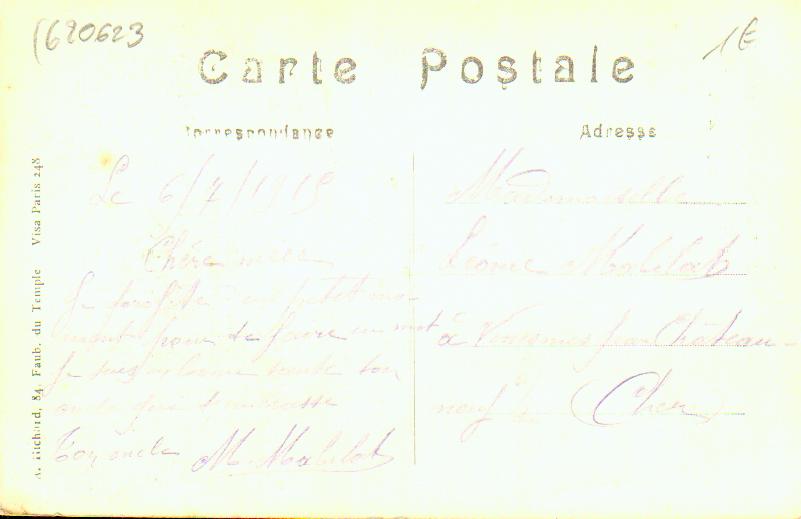 690623
1€
Carte Postale
Correspondance
Adresse
A. Richard, 84, Faub. du Temple Visa Paris 248
Le 6/7/1915
Chère nièce
Je profite d'un petit mo-
ment pour te faire un mot
Je suis en bonne santé ton
oncle qui t'embrasse
Ton oncle M. Mabilat
Mademoiselle
Léonie Mabilat
à Venesmes par Château-
neuf (Cher)